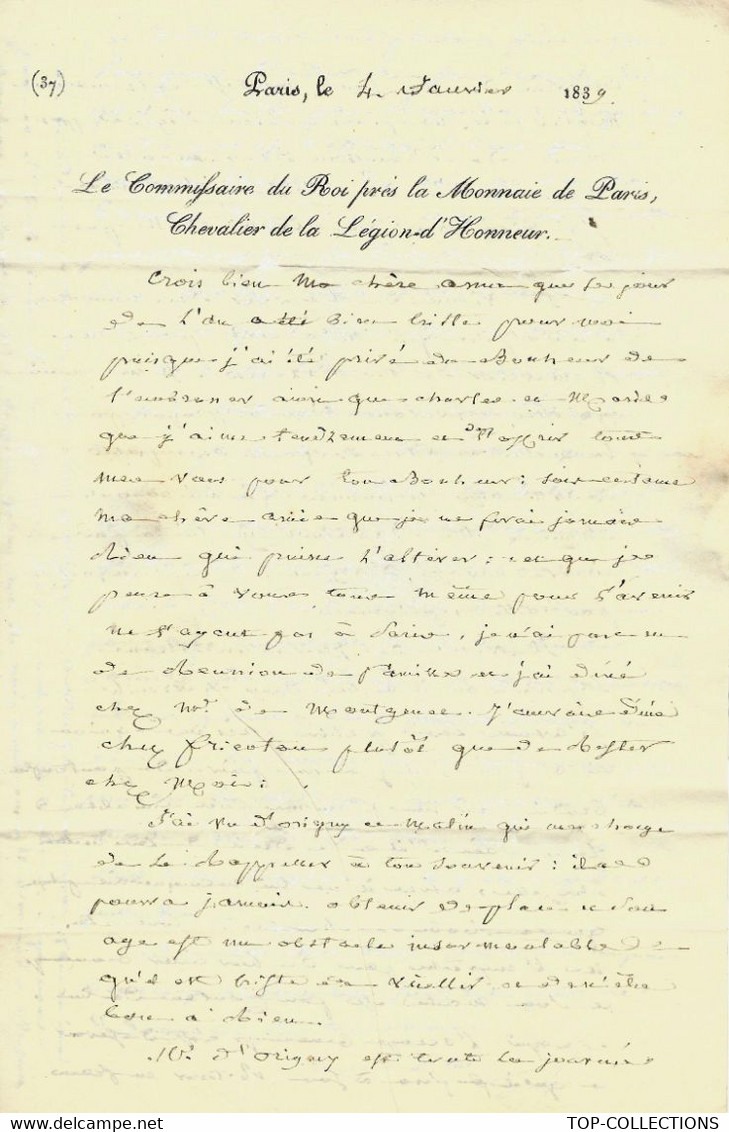 (37)
Paris, le 4 Janvier 1839
Le Commissaire du Roi près la Monnaie de Paris,
Chevalier de la Légion-d'Honneur.
Crois bien ma chère amie que le jour
de l'an a été bien triste pour moi
puisque j'ai été privé du Bonheur de
t'embrasser ainsi que charles et Marie
que j'aime tendrement et de t'offrir tous
mes vœux pour ton Bonheur : sois certaine
ma chère amie que je ne ferai jamais
Rien qui puisse l'altérer : et que je
pense à vous tous même pour l'avenir
ne t'ayant pas à Paris, je n'ai pas eu
de Réunion de famille et j'ai diné
chez Mr. de Montgenet. J'aurais diné
chez fricoteau plutôt que de Rester
chez Moi :
J'ai vu d'origny ce Matin qui me charge
de le Rappeller à ton souvenir : il ne
pourra jamais obtenir de place et son
age est un obstacle insurmontable
qu'il est triste de vieillir et de n'être
bon à Rien.
Mr. d'origny est toute la journée
TOP-COLLECTIONS